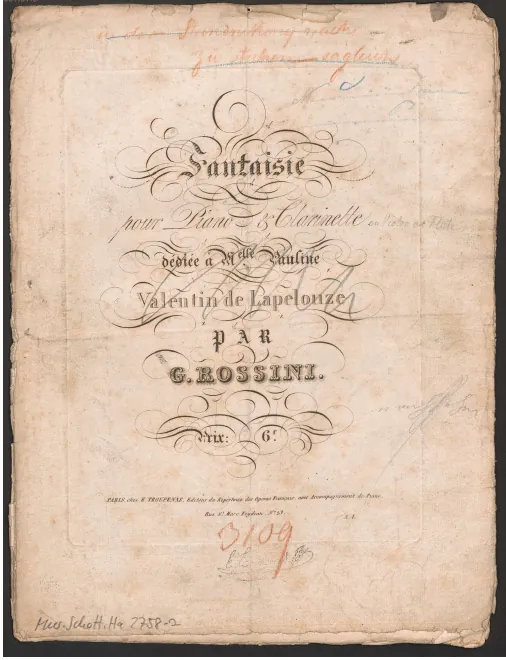 zu
Fantaisie
pour Piano & Clarinette ou Violon ou Flûte
dédiée à Melle Pauline
Valentin de Lapelouze
PAR
G. ROSSINI.
Prix: 6f.
PARIS, chez E. TROUPENAS, Editeur du Répertoire des Opéras Français avec Accompagnement de Piano
Rue St. Marc Feydeau, No. 23
3109
Mus. Schott. Ha 2758-2